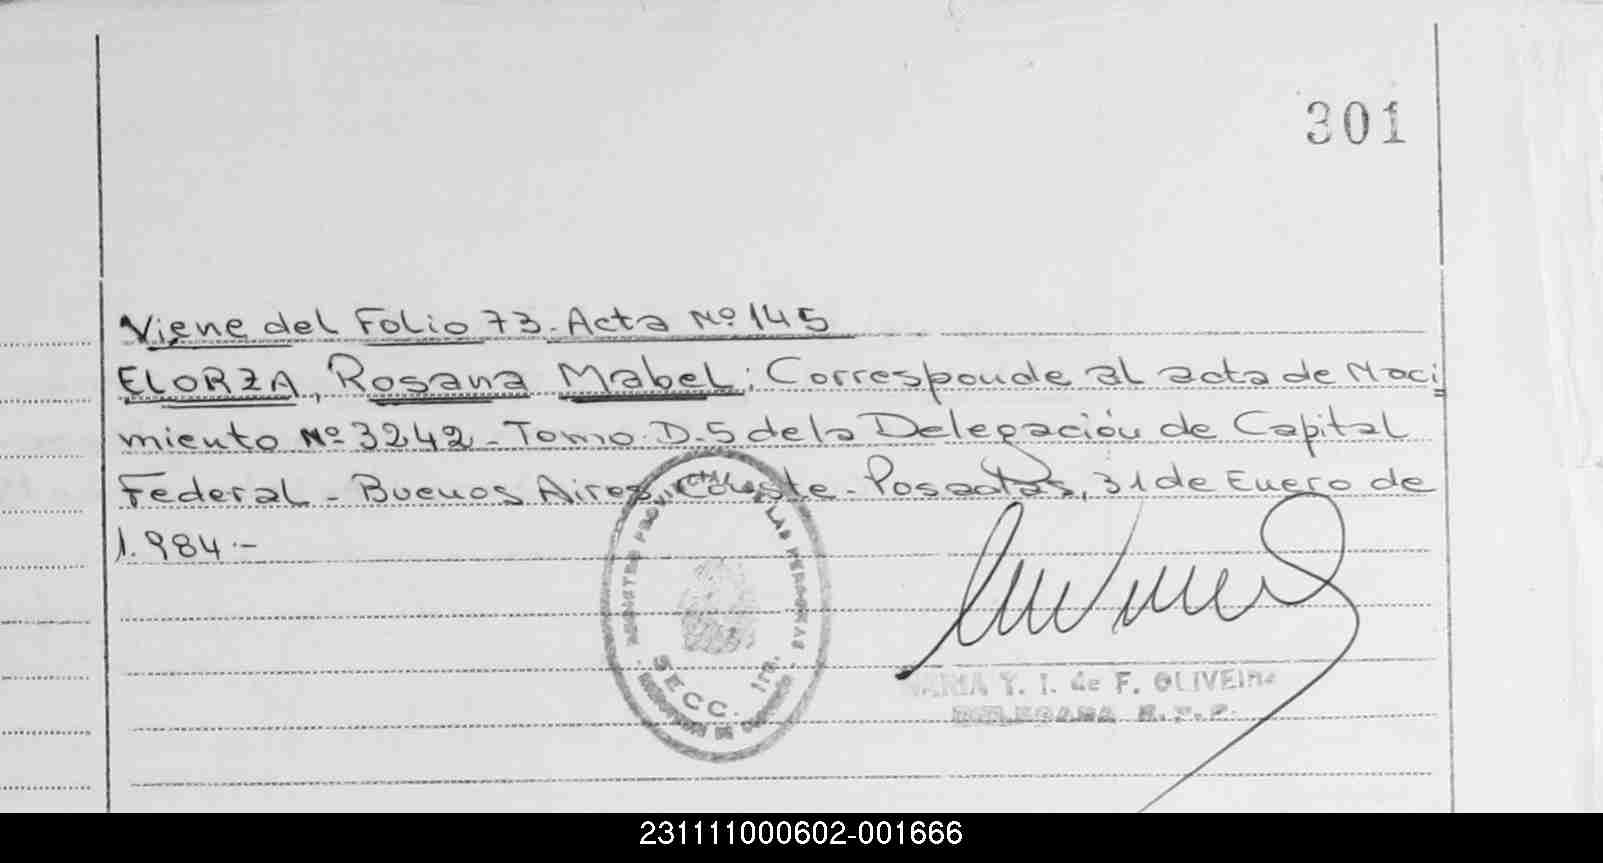 301
Viene del Folio 73. Acta Nº 145
ELORZA, Rosana Mabel: Corresponde al acta de Naci
miento Nº 3242 - Tomo: D. 5 de la Delegación de Capital
Federal - Buenos Aires, Conste - Posadas, 31 de Enero de
1.984.-
REGISTRO PROVINCIAL LAS PERSONAS
SECC. 1ra.
MARIA Y. I. de F. OLIVEIRA
DELEGADA R.P.P.
231111000602-001666